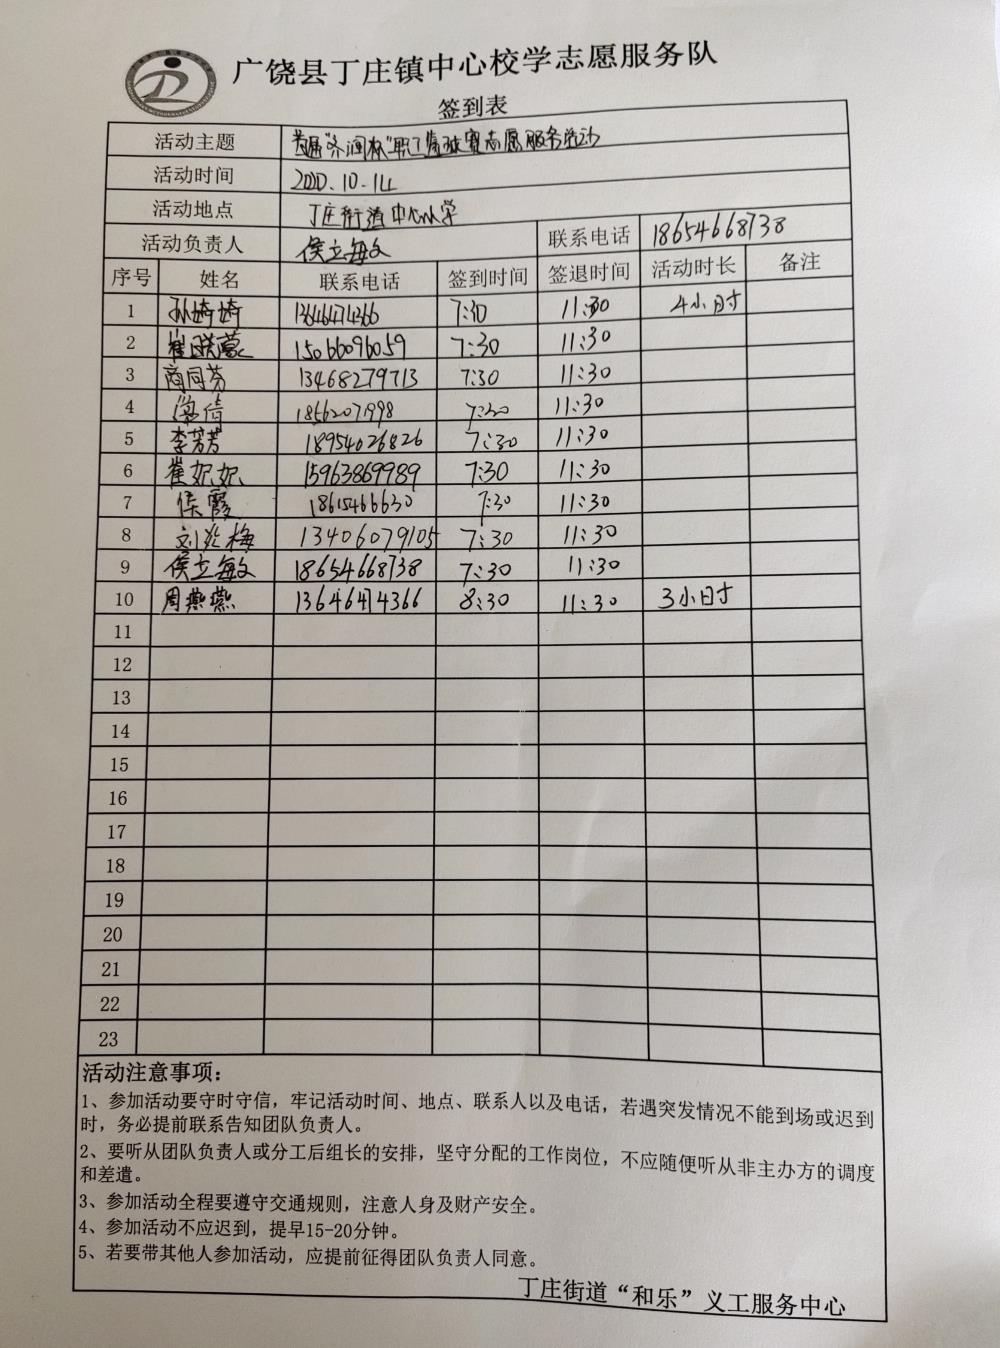 广饶县丁庄镇中心校学志愿服务队
签到表
活动主题 首届"齐润杯"职工篮球赛志愿服务活动
活动时间 2020.10.14
活动地点 丁庄街道中心小学
活动负责人 侯立敏 联系电话 18654668738
序号 姓名 联系电话 签到时间 签退时间 活动时长 备注
1 孙埼埼 13646474366 7:30 11:30 4小时
2 崔联蒙 15066096059 7:30 11:30
3 商同芬 13468279713 7:30 11:30
4 倩 18562071998 7:30 11:30
5 李芳芳 18954026826 7:30 11:30
6 崔妃妃 15963869989 7:30 11:30
7 侯霞 18615466630 7:30 11:30
8 刘梅 13406079105 7:30 11:30
9 侯立敏 18654668738 7:30 11:30
10 周燕燕 13646474366 8:30 11:30 3小时
11
12
13
14
15
16
17
18
19
20
21
22
23
活动注意事项：
1、参加活动要守时守信，牢记活动时间、地点、联系人以及电话，若遇突发情况不能到场或迟到
时，务必提前联系告知团队负责人。
2、要听从团队负责人或分工后组长的安排，坚守分配的工作岗位，不应随便听从非主办方的调度
和差遣。
3、参加活动全程要遵守交通规则，注意人身及财产安全。
4、参加活动不应迟到，提早15-20分钟。
5、若要带其他人参加活动，应提前征得团队负责人同意。
丁庄街道“和乐”义工服务中心